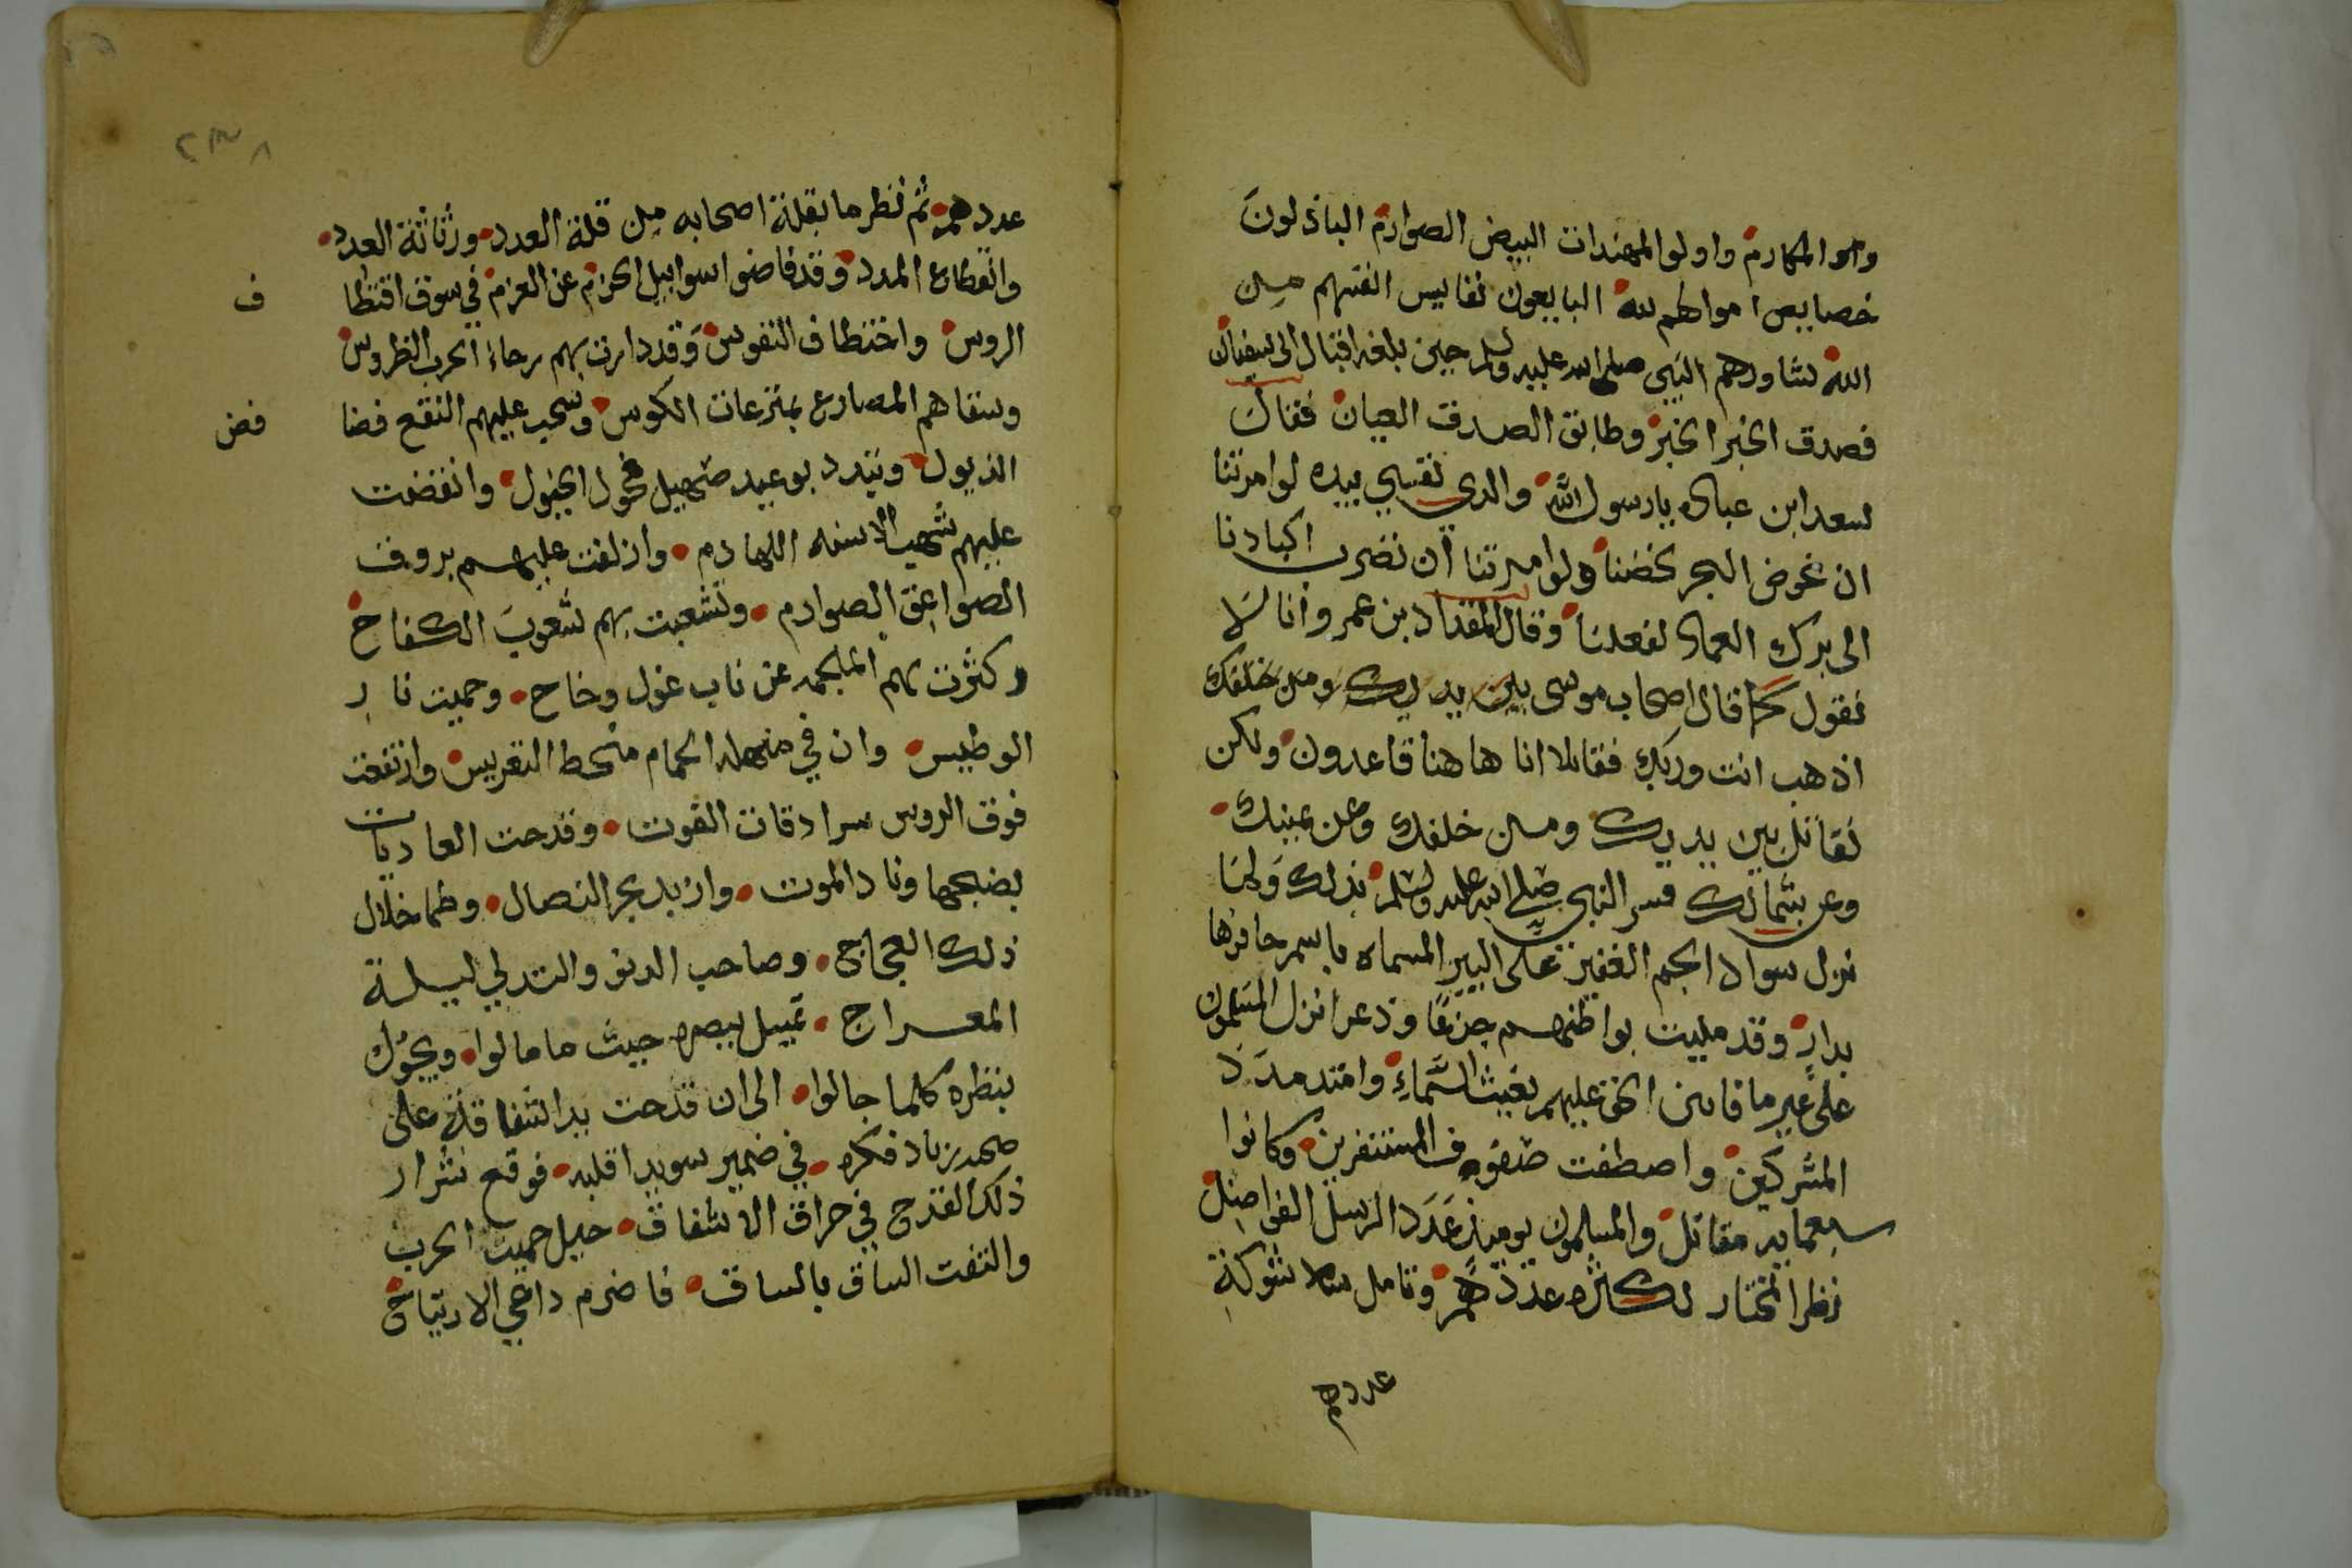 واهو المكارم واولوا المهندات البيض الصوارم الباذلون
خصايص اموالهم لله البايعون نفايس انفسهم من
الله شاورهم النبي صلى الله عليه وسلم حين بلغه اقبال ابى سفيان
فصدق الخبر الخبر وطابق الصدق العيان فقال
سعد ابن عباده يارسول الله والدي نفسي بيده لوامرتنا
ان نخوض البحر لخضنا ولوامرتنا ان نضرب اكبادنا
الى برك العماد لفعلنا وقال المقداد بن عمرو انا لا
نقول كما قال اصحاب موسى
اذهب انت وربك فقاتلا انا هاهنا قاعدون ولكن
نقاتل بين يديك ومن خلفك وعن يمينك
وعن شمالك فسر النبي صلى الله عليه وسلم بذلك ولما
نزل سواد الجم الغفير على البير المسماه باسم حافرها
بدار وقد مليت بواطنهم جزعا وذعرا نزل المسلمون
على غير ما فامن الحق عليهم بغيث السماء وامتد مدد
المشركين واصطفت صفوف المستنفرين وكانوا
سبعمايه مقاتل والمسلمون يوميذ عدد الرسل الفواضل
نظر المختار لكثره عددهم وتامل سلا شوكة
عددهم
عددهم ثم نظر ما بقلة اصحابه من قلة العدد ورثاثة العدد
وانقطاع المدد وقد فاضوا سوابيل الحزام عن العزم في سوق اقتطا
ف
الروس واختطاف النفوس وقد دارت بهم رحاء الحرب الضروس
وسقاهم المصارع بمترعات الكوس وسحب عليهم النقع فضا
فض
الذيول وتبدد بوعيد صهيل فحول الخيول وانقضت
عليهم شهب الاسنه اللهادم وازلفت عليهم بروق
الصواعق الصوارم وتشعبت بهم شعوب الكفاح
وكثرت بهم الملجمه عن ناب غول وخاح وحميت نار
الوطيس وان في منهله الحمام منحط التقريس وارتفعت
فوق الروس سرادقات الفوت وقدحت العاديات
بضبحها وناد الموت وازبد بحر النصال وطما خلال
ذلك العجاج وصاحب الدنو والتدلي ليلة
المعراج يميل ببصره حيث ما مالوا ويجول
بنظره كلما جالوا الى ان قدحت يد الشفاقة على
صحد زناد فكره في ضمير سويدا قلبه فوقع شرار
ذلك القدح في حراق الاشفاق حيل حميت الحرب
والتفت الساق بالساق فاضرم داعي الارتياح